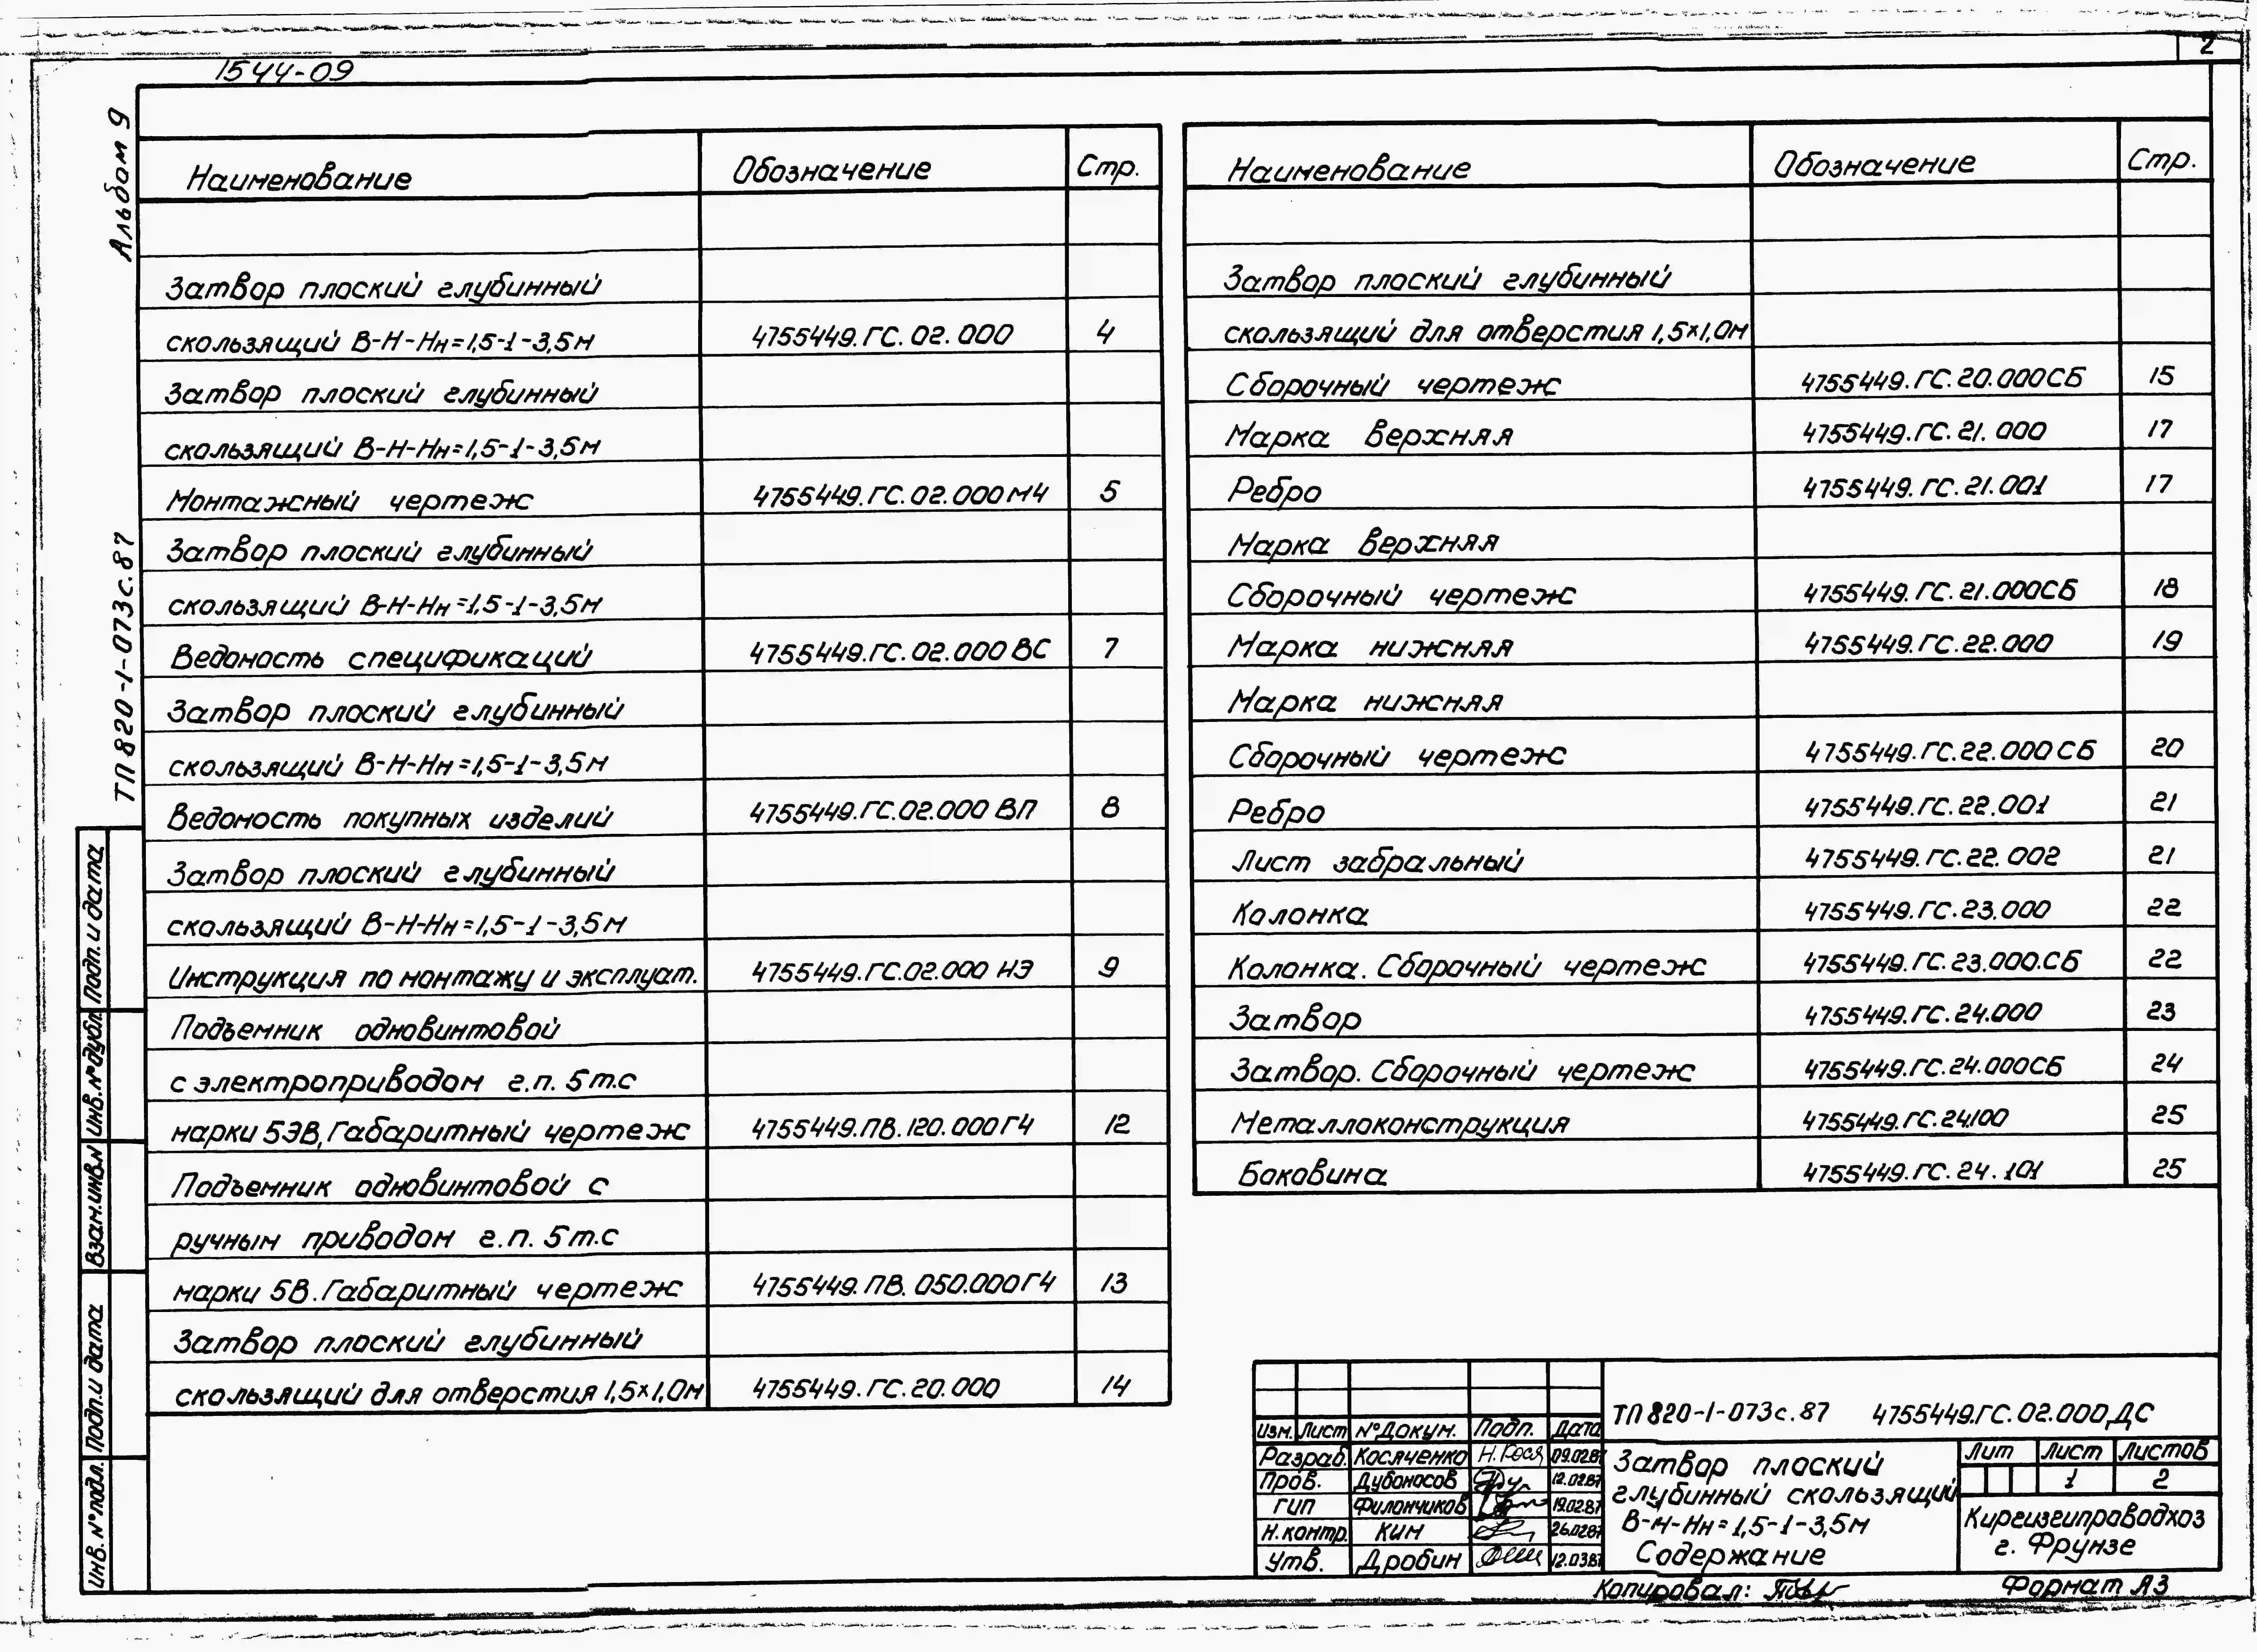 2
1544-09
Альбом 9
ТП 820-1-073с.87
Наименование Обозначение Стр.
Затвор плоский глубинный
скользящий В-Н-Нн=1,5-1-3,5м 4755449.ГС.02.000 4
Затвор плоский глубинный
скользящий В-Н-Нн=1,5-1-3,5м
Монтажный чертеж 4755449.ГС.02.000МЧ 5
Затвор плоский глубинный
скользящий В-Н-Нн=1,5-1-3,5м
Ведомость спецификаций 4755449.ГС.02.000ВС 7
Затвор плоский глубинный
скользящий В-Н-Нн=1,5-1-3,5м
Ведомость покупных изделий 4755449.ГС.02.000 ВП 8
Затвор плоский глубинный
скользящий В-Н-Нн=1,5-1-3,5м
Инструкция по монтажу и эксплуат. 4755449.ГС.02.000 ИЭ 9
Подъемник одновинтовой
с электроприводом г.п. 5т.с
марки 5ЭВ, Габаритный чертеж 4755449.ПВ.120.000ГЧ 12
Подъемник одновинтовой с
ручным приводом г.п. 5т.с
марки 5В. Габаритный чертеж 4755449.ПВ.050.000ГЧ 13
Затвор плоский глубинный
скользящий для отверстия 1,5х1,0м 4755449.ГС.20.000 14
Наименование Обозначение Стр.
Затвор плоский глубинный
скользящий для отверстия 1,5х1,0м
Сборочный чертеж 4755449.ГС.20.000СБ 15
Марка верхняя 4755449.ГС.21.000 17
Ребро 4755449.ГС.21.001 17
Марка верхняя
Сборочный чертеж 4755449.ГС.21.000СБ 18
Марка нижняя 4755449.ГС.22.000 19
Марка нижняя
Сборочный чертеж 4755449.ГС.22.000СБ 20
Ребро 4755449.ГС.22.001 21
Лист забральный 4755449.ГС.22.002 21
Колонка 4755449.ГС.23.000 22
Колонка. Сборочный чертеж 4755449.ГС.23.000.СБ 22
Затвор 4755449.ГС.24.000 23
Затвор. Сборочный чертеж 4755449.ГС.24.000СБ 24
Металлоконструкция 4755449.ГС.24.100 25
Боковина 4755449.ГС.24.101 25
Подп. и дата
Инв.№дубл.
Взам.инв.№
Подп. и дата
Инв.№подл.
Изм. Лист №Докум. Подп. Дата
Разраб. Косяченко Н.Кося 09.02.87
Пров. Дубоносов 12.02.87
ГИП Филончиков 19.02.87
Н.контр. Ким 26.02.87
Утв. Дробин 12.03.87
ТП 820-1-073с.87 4755449.ГС.02.000ДС
Затвор плоский
глубинный скользящий
В-Н-Нн=1,5-1-3,5м
Содержание
Лит Лист Листов
1 2
Киргизгипроводхоз
г. Фрунзе
Копировал:
Формат А3